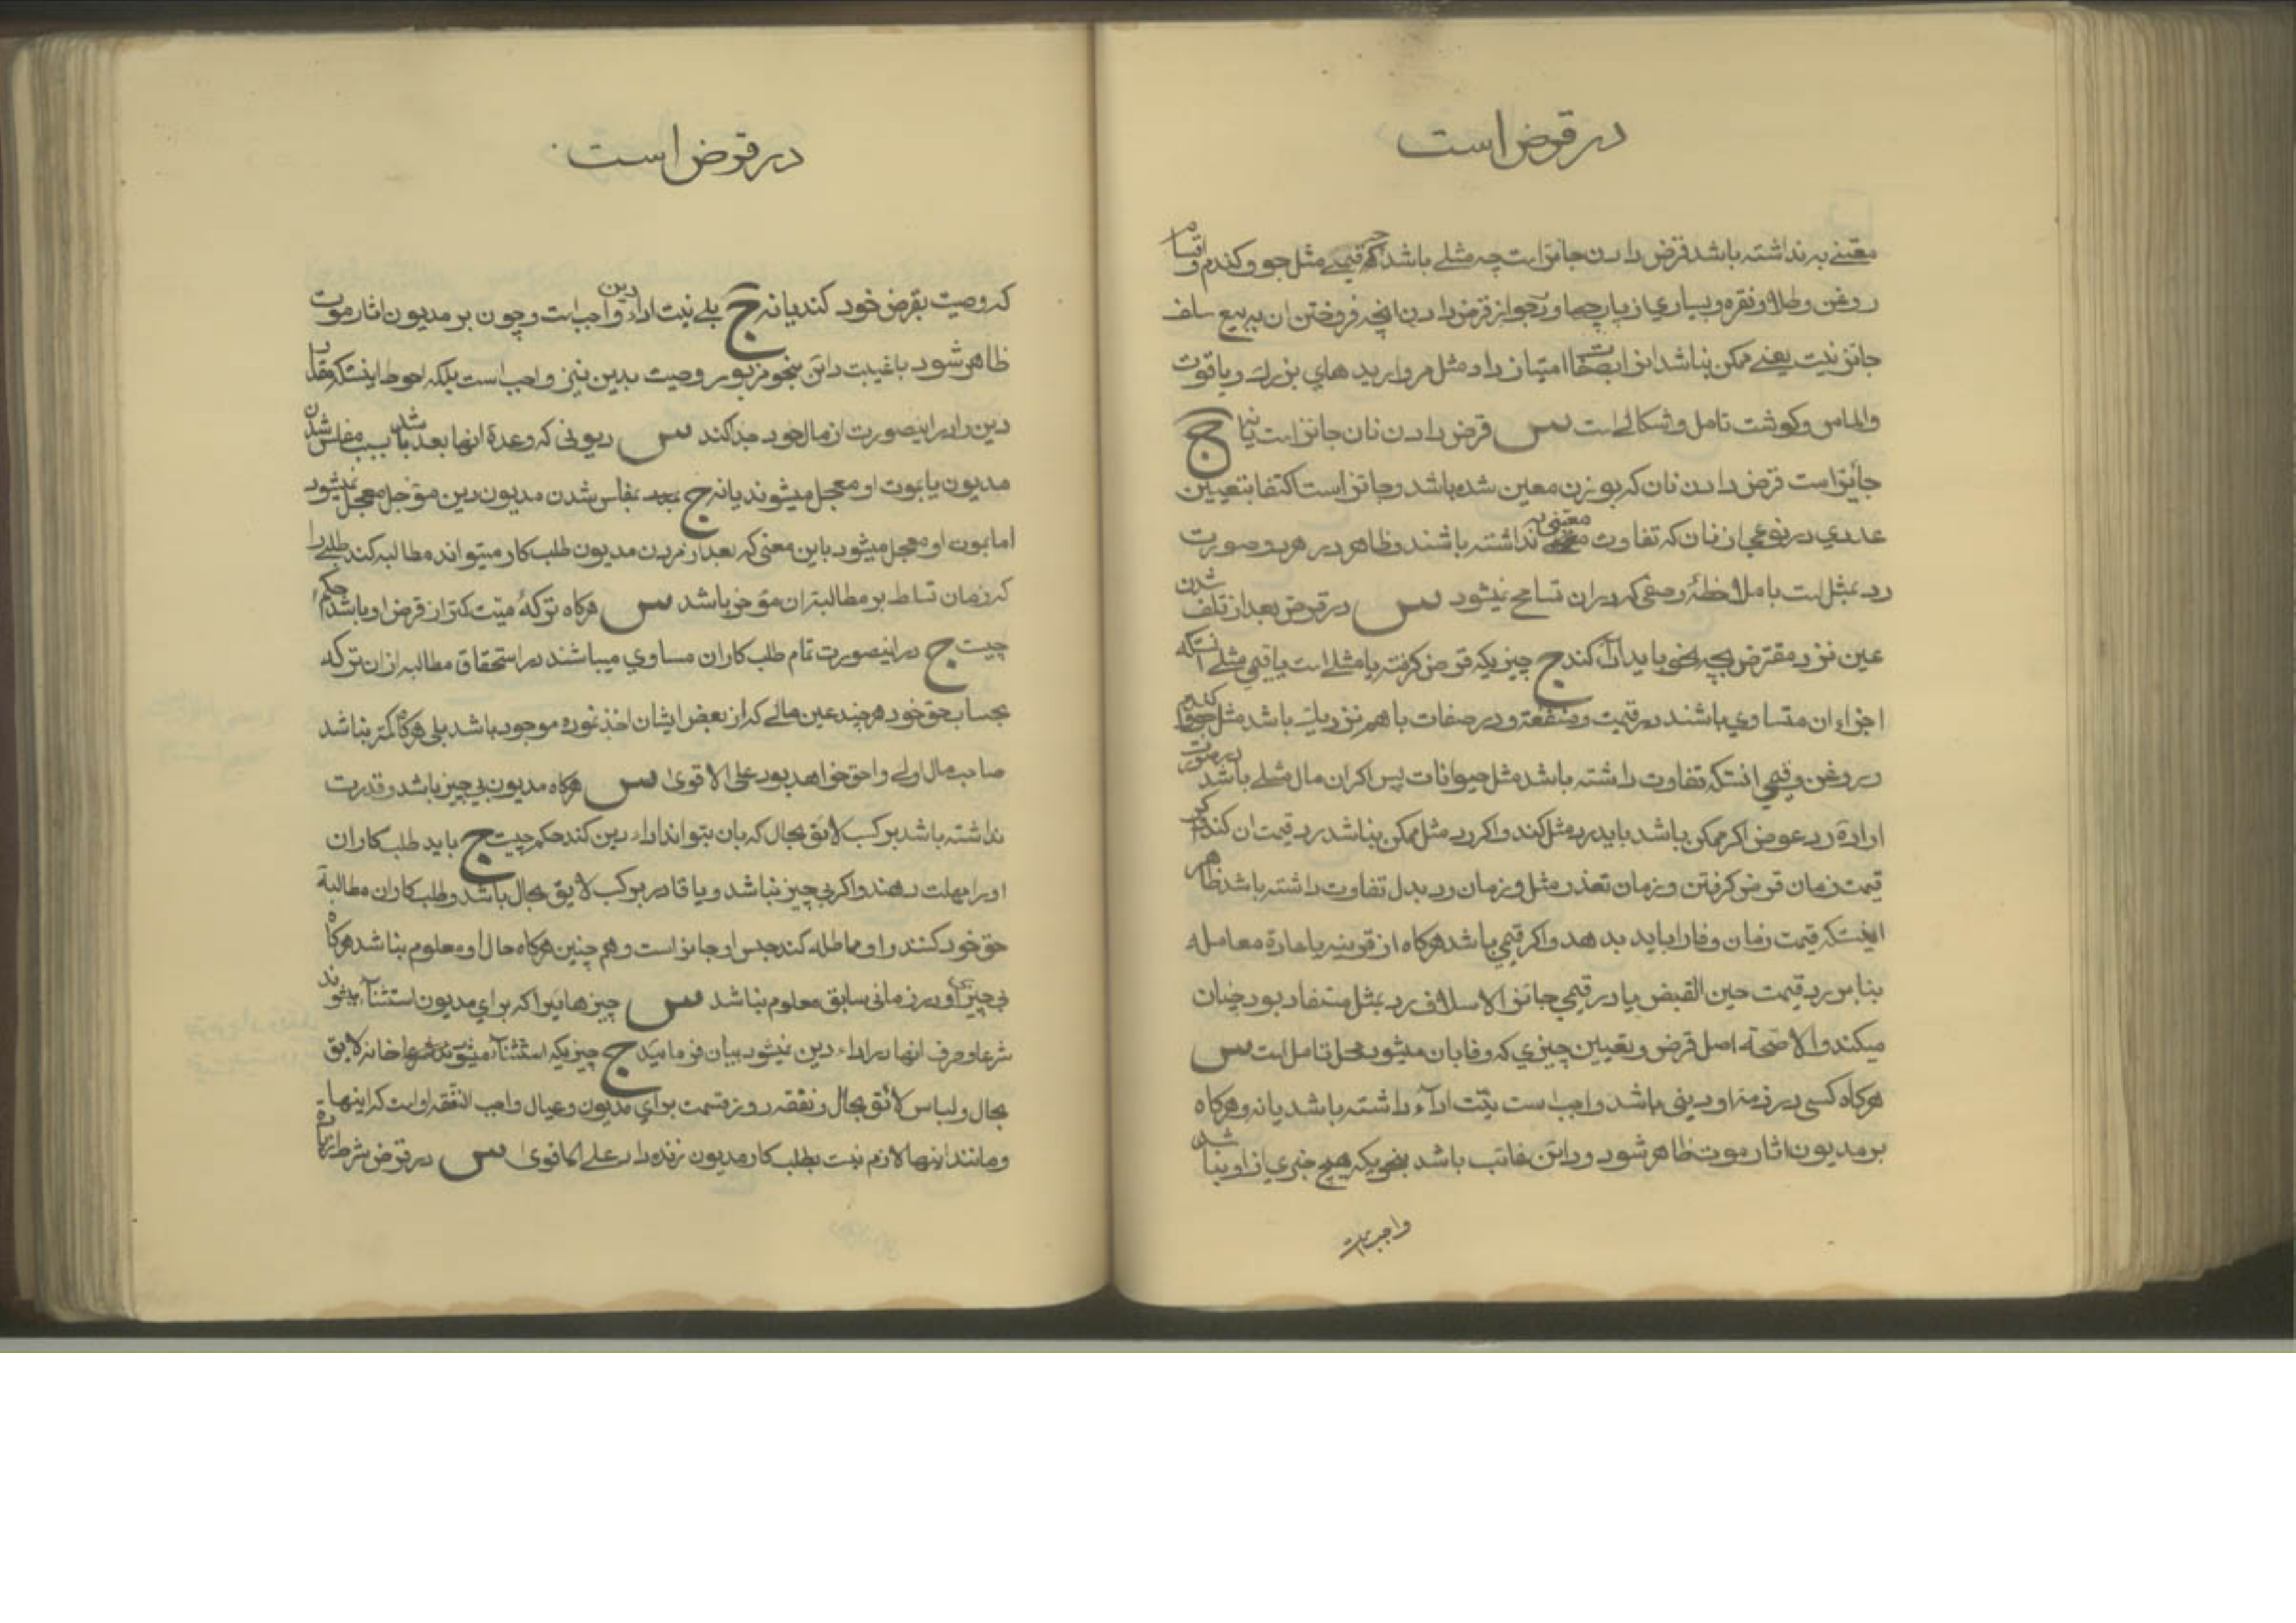 در قرض است
معتنی به نداشته باشد قرض دادن جائز است چه مثلے باشد چه قیمے مثل جو و کندم و اقسام
روغن و طلا و نقره و بسیاري از پارچها و در جواز قرض دادن انچه فروختن ان به بیع سلف
جائز نیست یعنے ممکن نباشد انرا بصفات امتیاز داد مثل مروارید هاي بزرك و یاقوت
والماس و کوشت تامل و اشکالے است س قرض دادن نان جائز است یا نه ج
جائز است قرض دادن نان که بوزن معین شده باشد و جائز است اکتفا بتعیین
عددي در نوعی از نان که تفاوت معتنی به نداشته باشند و ظاهر در هر دو صورت
رد بمثل است با ملاحظۀ وصفی که دران تسامح نمیشود س در قرض بعد از تلف شدن
عین نزد مقترض بچه نحو باید ادآ کند ج چیزیکه قرض کرفته یا مثلے است یا قیمي مثلے انستکه
اجزاء ان متساوي باشند در قیمت و منفعة و در صفات با هم نزدیك باشد مثل جو و کندم
در روغن و قیمي انستکه تفاوت داشته باشد مثل حیوانات پس اکر ان مال مثلے باشد در صورت
ارادۀ رد عوض اکر ممکن باشد باید رد مثل کند و اکر رد مثل ممکن نباشد رد قیمت ان کند و اکر
قیمت زمان قرض کرفتن و زمان تعذر مثل و زمان رد بدل تفاوت داشته باشد ظاهر
اینستکه قیمت زمان وفا را باید بدهد و اکر قیمي باشد هرکاه از قرینه یا عادة معامله
بنا بر رد قیمت حین القبض یا در قیمي جائز الاسلاف رد بمثل مستفاد بود چنان
میکند و الا صحة اصل قرض و تعیین چیزي که وفا بان میشود محل تامل است س
هرکاه کسی در ذمۀ او دینی باشد واجب است نیّت ادآء داشته باشد یا نه و هرکاه
بر مدیون اثار موت ظاهر شود و دائن غائب باشد بنحویکه هیچ خبري از او نباشد
واجب است
در قرض است
که وصیت بقرض خود کند یا نه ج بلے نیت اداء دین واجب است و چون بر مدیون اثار موت
ظاهر شود با غیبت دائن بنحو مزبور وصیت بدین نیز واجب است بلکه احوط اینستکه مقدار
دین را در اینصورت از مال خود جدا کند س دیونی که وعدۀ انها بعد باشد بسبب مفلس شدن
مدیون یا بموت او معجل میشوند یا نه ج بمفلس شدن مدیون دین مؤجل معجل نمیشود
اما بموت او معجل میشود باین معنی که بعد از مردن مدیون طلب کار میتواند مطالبه کند طلبے را
که زمان تسلط بر مطالبۀ ان مؤخر باشد س هرکاه ترکۀ میّت کمتر از قرض او باشد حکم
چیست ج در اینصورت تمام طلب کاران مساوي میباشند در استحقاق مطالبه از ان ترکه
بحساب حق خود هرچند عین مالے که از بعض ایشان اخذ نموده موجود باشد بلی هرکاه کمتر نباشد
صاحب مال اولے و احق خواهد بود علی الاقوی س هرکاه مدیون بي چیز باشد و قدرت
نداشته باشد بر کسب لایق بحال که بان بتواند اداء دین کند حکم چیست ج باید طلب کاران
او را مهلت دهند و اکر بی چیز نباشد و یا قادر بر کسب لایق بحال باشد و طلب کاران مطالبۀ
حق خود کنند و او مماطله کند حبس او جائز است و هم چنین هرکاه حال او معلوم نباشد هرکاه
بی چیزی او در زمانی سابق معلوم نباشد س چیز هائیرا که براي مدیون استثنآء میشوند
شرعا و صرف انها در اداء دین نمیشود بیان فرمائید ج چیزیکه استثنآء میشوند شرعا خانه لایق
بحال و لباس لائق بحال و نفقه روز قسمت براي مدیون و عیال واجب النفقه او است که اینها
و مانند اینها لازم نیست بطلب کار مدیون زنده داد علے الاقوی س در قرض شرط زیادة